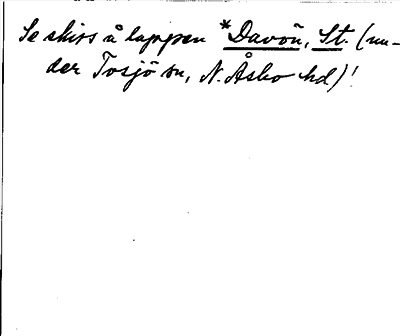 Se skiss å lappen *Davön, St. (un-
der Tosjö sn, N. Åsbo hd)!